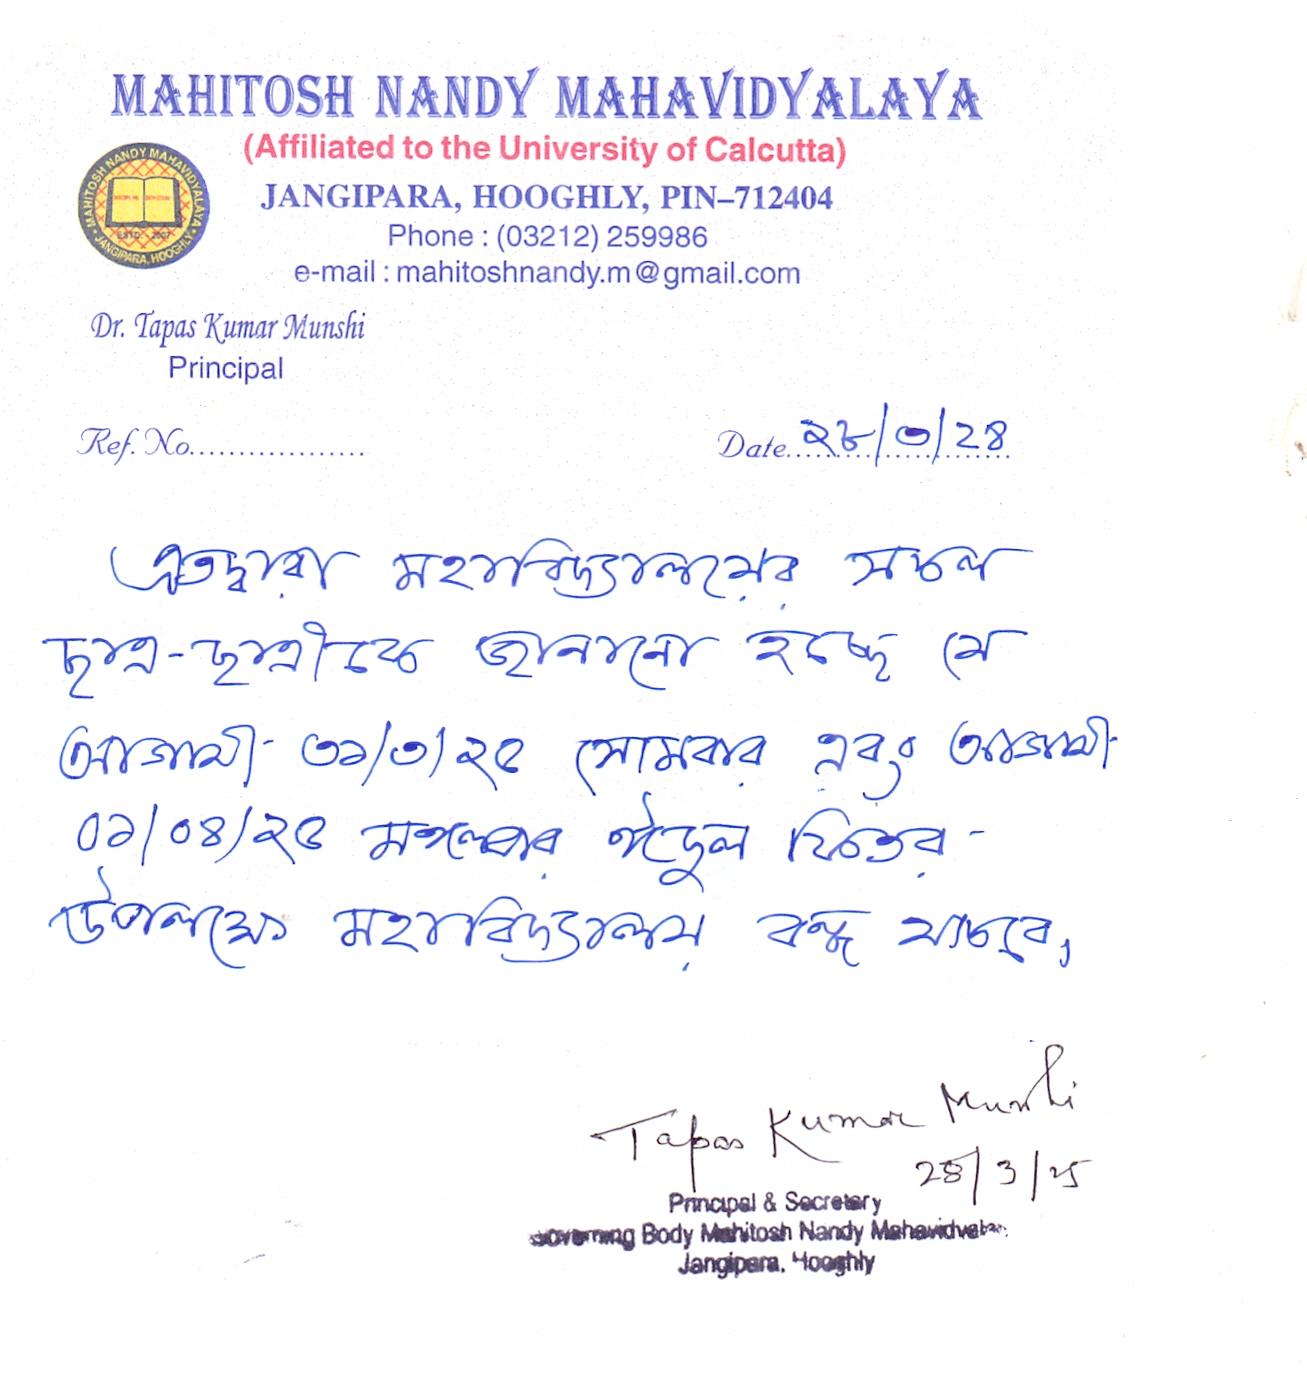 MAHITOSH NANDY MAHAVIDYALAYA
(Affiliated to the University of Calcutta)
JANGIPARA, HOOGHLY, PIN–712404
Phone : (03212) 259986
e-mail : mahitoshnandy.m@gmail.com
MAHITOSH NANDY MAHAVIDYALAYA
ESTD. - 2007
JANGIPARA, HOOGHLY
Dr. Tapas Kumar Munshi
Principal
Ref. No..................
Date..২৮/৩/২৪
এতদ্বারা মহাবিদ্যালয়ের সকল
ছাত্র-ছাত্রীকে জানানো হচ্ছে যে
আগামী ৩১/৩/২৫ সোমবার এবং আগামী
০১/০৪/২৫ মঙ্গলবার ঈদুল ফিতর
উপলক্ষ্যে মহাবিদ্যালয় বন্ধ থাকবে,
Tapas Kumar Munshi
28/3/25
Principal & Secretary
Governing Body Mahitosh Nandy Mahavidyalaya
Jangipara, Hooghly